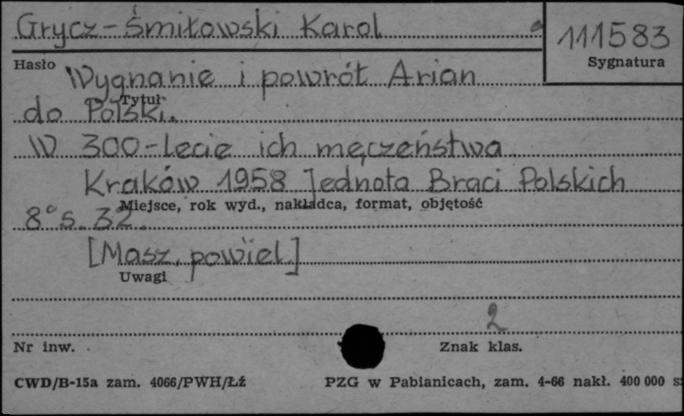 Grycz-Śmiłowski Karol
111583
Hasło
Sygnatura
Wygnanie i powrót Arian
Tytuł
do Polski.
W 300-lecie ich męczeństwa
Kraków 1958 Jednota Braci Polskich
Miejsce, rok wyd., nakładca, format, objętość
8° s. 32.
[Masz. powiel.]
Uwagi
2
Nr inw.
Znak klas.
CWD/B-15a zam. 4066/PWH/Łź
PZG w Pabianicach, zam. 4-66 nakł. 400 000